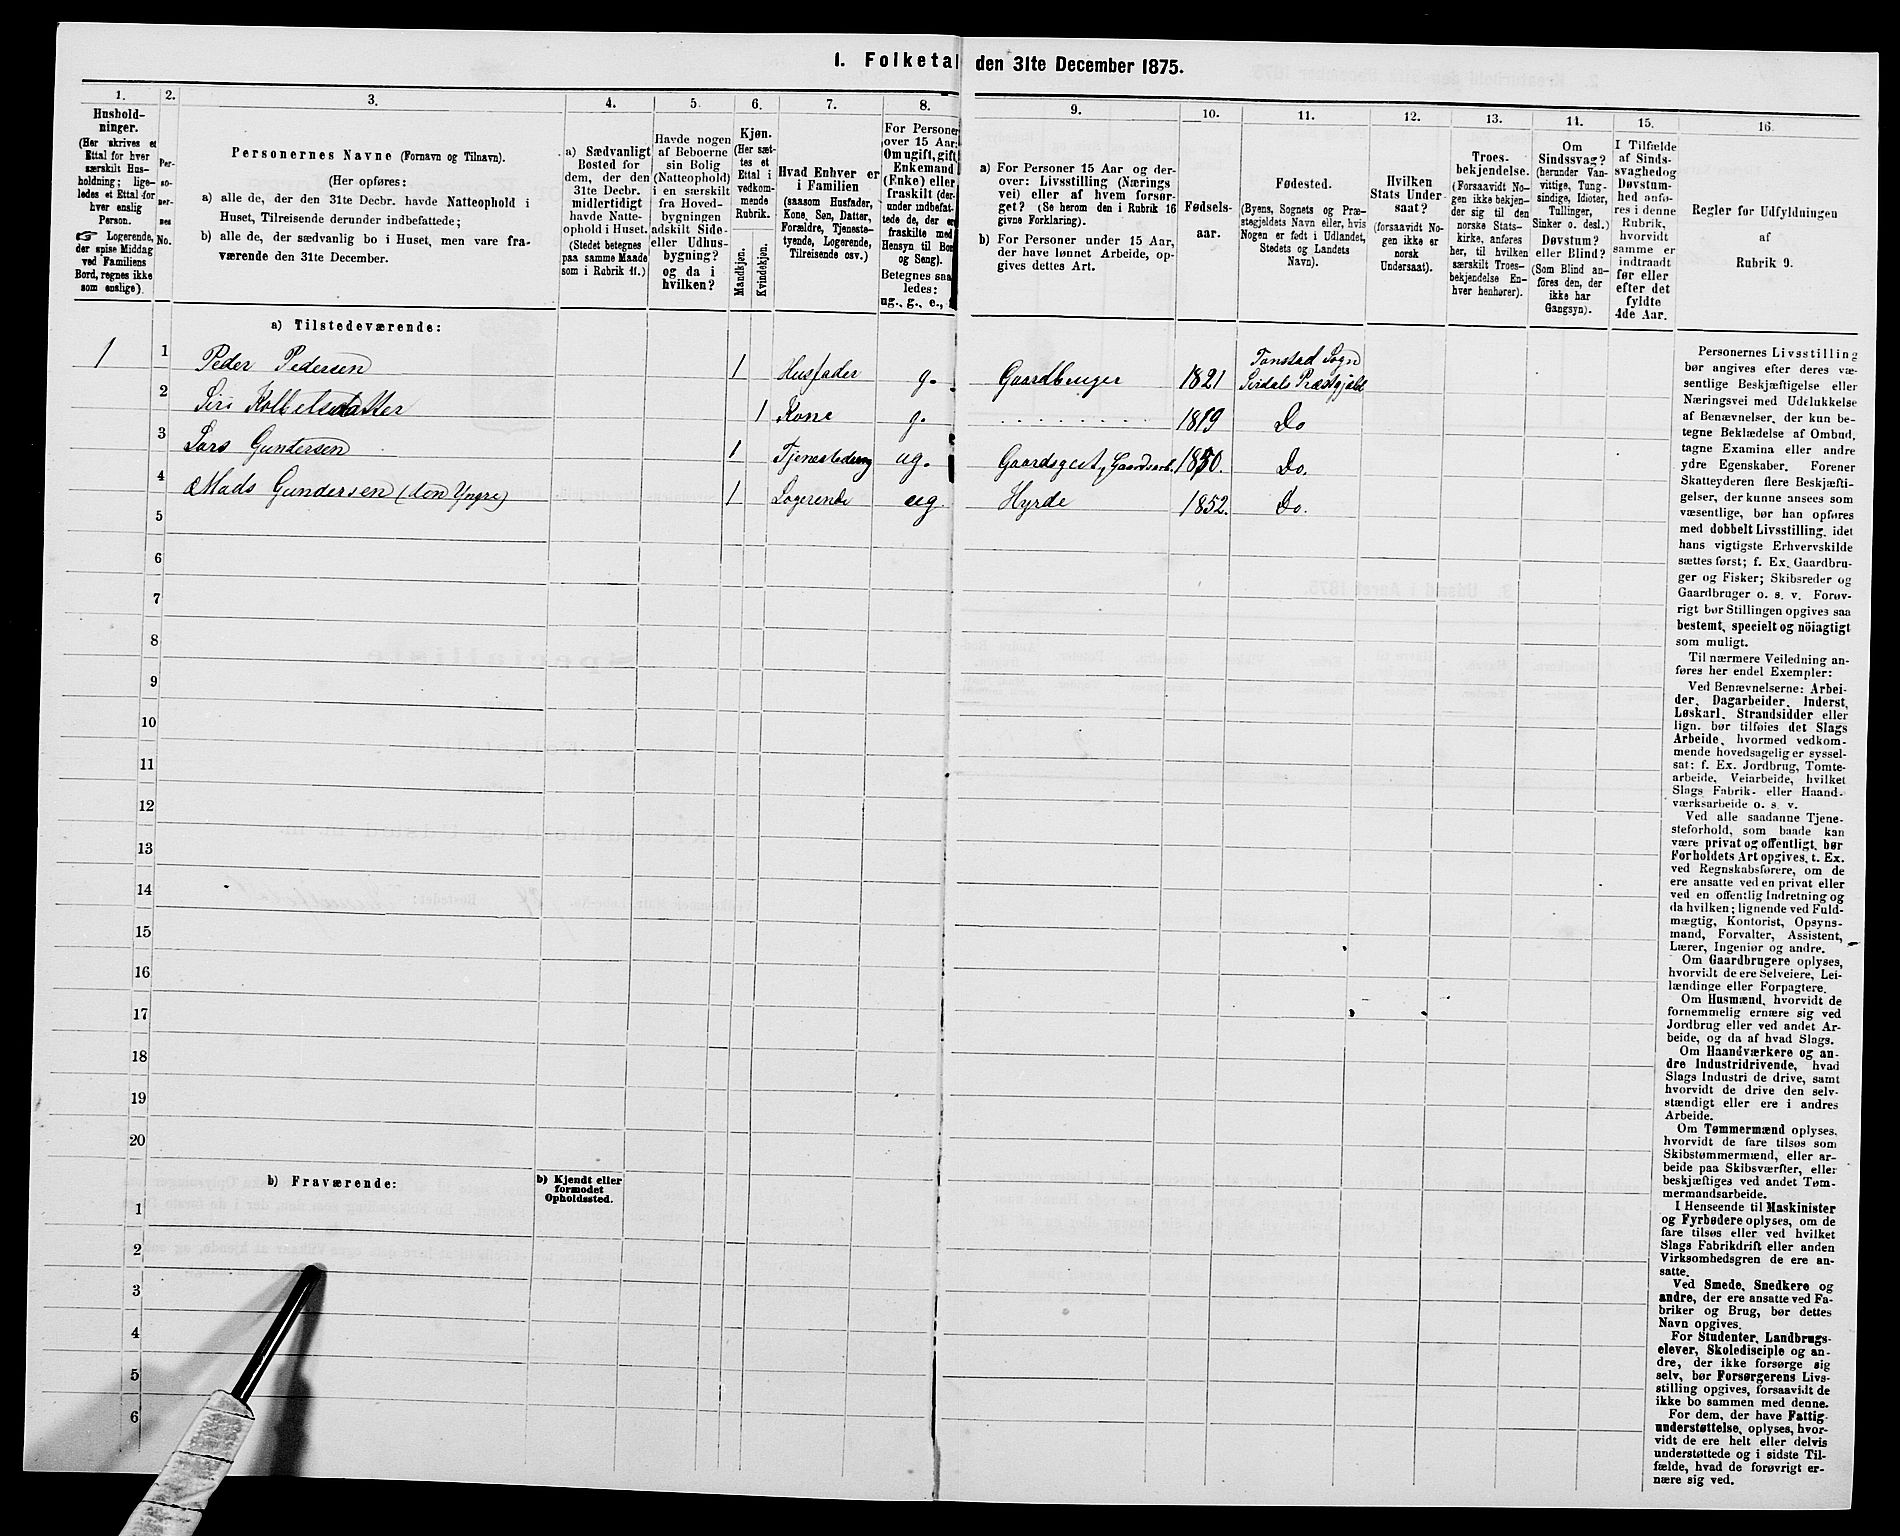 1. Folketal den 31te December 1875.
1. 2. 3. 4. 5. 6. 7. 8. 9. 10. 11. 12. 13. 14. 15. 16.
Hushold-
ninger.
(Her skrives et
Ettal for hver
særskilt Hus-
holdning; lige-
ledes et Ettal for
hver enslig
Person.
☞ Logerende,
der spise Middag
ved Familiens
Bord, regnes ikke
som enslige).
Per-
so-
ner-
nes
No.
Personernes Navne (Fornavn og Tilnavn).
(Her opføres:
a) alle de, der den 31te Decbr. havde Natteophold i
Huset, Tilreisende derunder indbefattede;
b) alle de, der sædvanlig bo i Huset, men vare fra-
værende den 31te December.
a) Sædvanligt
Bosted for
dem, der den
31te Decbr.
midlertidigt
havde Natte-
ophold i Huset.
(Stedet betegnes
paa samme Maade
som i Rubrik 11.)
Havde nogen
af Beboerne
sin Bolig
(Natteophold)
i en særskilt
fra Hoved-
bygningen
adskilt Side-
eller Udhus-
bygning?
og da i
hvilken?
Kjøn.
(Her sæt-
tes et
Ettal i
vedkom-
mende
Rubrik.
Mandkjøn.
Kvindekjøn.
Hvad Enhver er
i Familien
(saasom Husfader,
Kone, Søn, Datter,
Forældre, Tjeneste-
tyende, Logerende,
Tilreisende osv.)
For Personer
over 15 Aar:
Om ugift, gift
Enkemand
(Enke) eller
fraskilt (der-
under indbefat-
tede de, der er
fraskilte med
Hensyn til Bor
og Seng).
Betegnes saa-
ledes:
ug., g., e.,
a) For Personer 15 Aar og der-
over: Livsstilling (Nærings
vei) eller af hvem forsør-
get? (Se herom den i Rubrik 16
givne Forklaring).
b) For Personer under 15 Aar,
der have lønnet Arbeide, op-
gives dettes Art.
Fødsels-
aar.
Fødested.
(Byens, Sognets og Præ-
stegjeldets Navn eller, hvis
Nogen er født i Udlandet,
Stedets og Landets
Navn).
Hvilken
Stats Under
saat?
(forsaavidt No-
gen ikke er
norsk
Undersaat).
Troes-
bekjendelse.
(Forsaavidt No-
gen ikke bekjen-
der sig til den
norske Stats-
kirke, anføres
her, til hvilken
særskilt Troes-
bekjendelse En-
hver henhører).
Om
Sindssvag?
(herunder Van-
vittige, Tung-
sindige, Idioter,
Tullinger,
Sinker o. desl.)
Døvstum?
eller Blind?
(Som Blind an-
føres den, der
ikke har
Gangsyn).
I Tilfælde
af Sinds-
svaghedog
Døvstum-
hed anfø-
res i denne
Rubrik,
hvorvidt
samme er
indtraadt
før eller
efter det
fyldte
4de Aar.
Regler for Udfyldningen
af
Rubrik 9.
a) Tilstedeværende:
1 1 Peder Pedersen 1 Husfader g. Gaardbruger 1821 Tonstad Sogn Sirdals Præstgjeld
2 Siri Kolbeisdatter 1 Kone g. 1819 Do
3 Lars Gundersen 1 Tjenestedreng ug. Gaardsgut, Gaardsarb. 1850. Do.
4 Mads Gundersen (den Yngre) 1 Logerende ug. Hyrde 1852. Do.
5
6
7
8
9
10
11
12
13
14
15
16
17
18
19
20
b) Fraværende:
b) Kjendt eller
formodet
Opholdssted.
1
2
3
4
5
6
Personernes Livsstilling
bør angives efter deres væ-
sentlige Beskjæftigelse eller
Næringsvei med Udelukkelse
af Benævnelser, der kun be-
tegne Beklædelse af Ombud,
tagne Examina eller andre
ydre Egenskaber. Forener
Skatteyderen flere Beskjæfti-
gelser, der kunne ansees som
væsentlige, bør han opføres
med dobbelt Livsstilling, idet
hans vigtigste Erhvervskilde
sættes først; f. Ex. Gaardbru-
ger og Fisker; Skibsreder og
Gaardbruger o. s. v. Forøv-
rigt bør Stillingen opgives saa
bestemt, specielt og nöiagtigt
som muligt.
Til nærmere Veiledning an-
føres her endel Exempler:
Ved Benævnelserne: Arbei-
der, Dagarbeider, Inderst,
Løskarl, Strandsidder eller
lign. bør tilføies det Slags
Arbeide, hvormed vedkom-
mende hovedsagelig er syssel-
sat: f. Ex. Jordbrug, Tomte-
arbeide, Veiarbeide, hvilket
Slags Fabrik- eller Haand-
værksarbeide o. s. v.
Ved alle saadanne Tjene-
steforhold, som baade kan
være privat og offentligt, bør
Forholdets Art opgives, t. Ex.
ved Regnskabsførere, om de
ere ansatte ved en privat eller
ved en offentlig Indretning og
da hvilken; lignende ved Fuld-
mægtig, Kontorist, Opsyns-
mand, Forvalter, Assistent,
Lærer, Ingeniør og andre.
Om Gaardbrugere oplyses,
hvorvidt de ere Selveiere, Lei-
lændinge eller Forpagtere.
Om Husmænd, hvorvidt de
fornemmelig ernære sig ved
Jordbrug eller ved andet Ar-
beide, og da af hvad Slags.
Om Haandværkere og an-
dre Industridrivende, hvad
Slags Industri de drive, samt
hvorvidt de drive den selv-
stændigt eller ere i andres
Arbeide.
Om Tømmermænd oplyses,
hvorvidt de fare tilsøs som
Skibstømmermænd, eller ar-
beide paa Skibsværfter, eller
beskjæftiges ved andet Tøm-
mermandsarbeide.
I Henseende til Maskinister
og Fyrbødere oplyses, om de
fare tilsøs eller ved hvilket
Slags Fabrikdrift eller anden
Virksomhedsgren de ere an-
satte.
Ved Smede, Snedkere og
andre, der ere ansatte ved Fa-
briker og Brug, bør dettes
Navn opgives.
For Studenter, Landbrugs-
elever, Skoledisciple og an-
dre, der ikke forsørge sig
selv, bør Forsørgerens Livs-
stilling opgives, forsaavidt de
ikke bo sammen med denne.
For dem, der have Fattig-
understøttelse, oplyses, hvor-
vidt de ere helt eller delvis
understøttede og i sidste Til-
fælde, hvad de forøvrigt er-
nære sig ved.